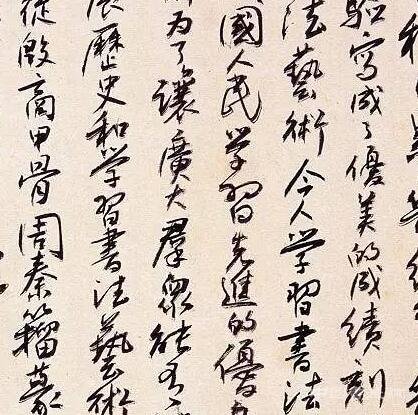 寫成了優美的成績刻
法藝術今人学習書法
國人民学習先進的優
為了讓廣大羣衆能
展歷史和学習書法藝術
從殷商甲骨周秦籀篆